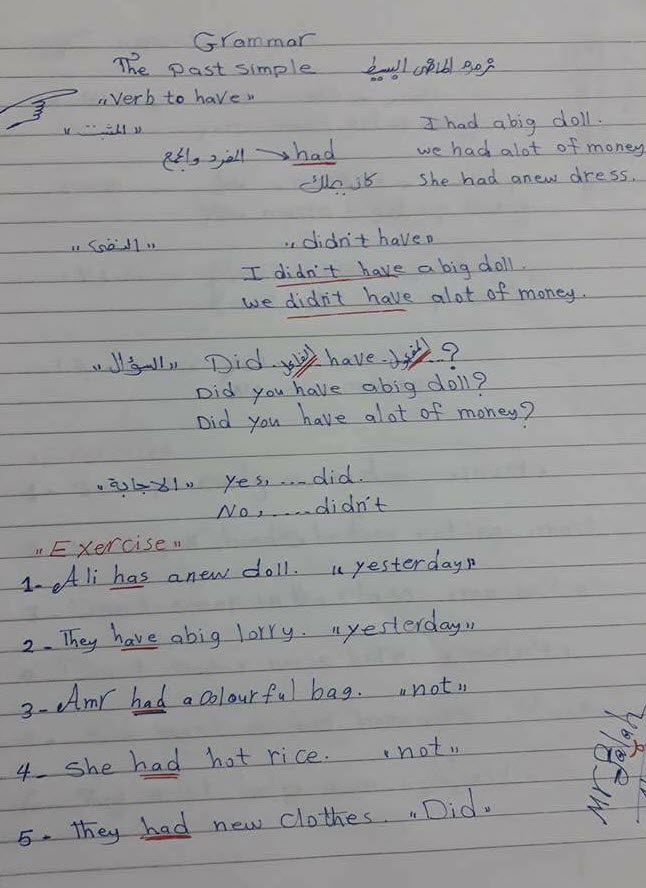 Grammar
The past simple زمن الماضى البسيط
"Verb to have"
"المثبت" I had abig doll.
المفرد والجمع → had we had alot of money
كان يملك She had anew dress.
"النفى" "didn't have"
I didn't have abig doll.
we didn't have alot of money.
"السؤال" Did الفاعل have المفعول...?
Did you have abig doll?
Did you have alot of money?
"الاجابة" Yes, ... did.
No, .... didn't
"Exercise"
1- Ali has anew doll. "yesterday"
2- They have abig lorry. "yesterday"
3- Amr had a colourful bag. "not"
4- She had hot rice. "not"
5- They had new clothes. "Did"
Mr Salah